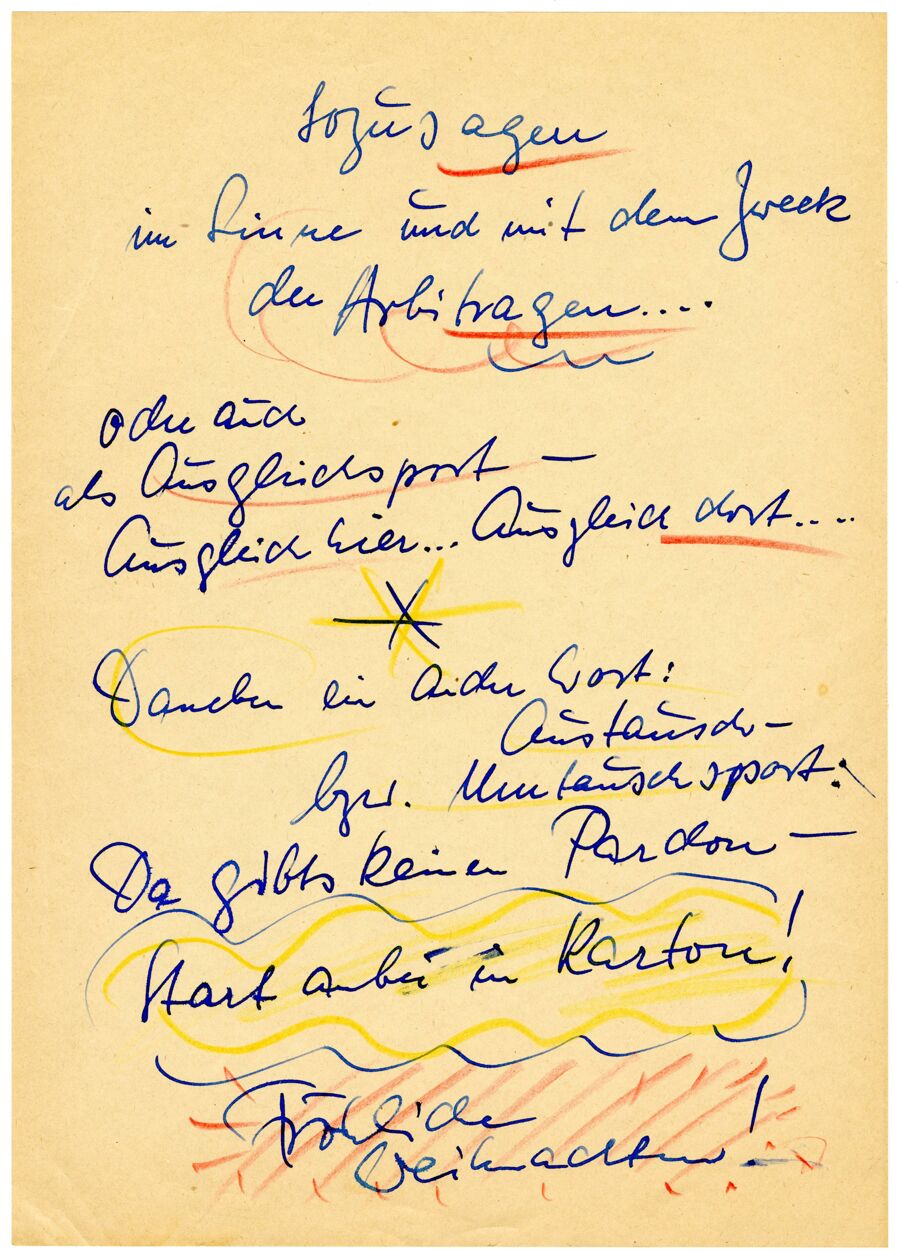 Sozusagen
im Sinne und mit dem Zweck
der Arbitragen....
oder auch
als Ausgleichsport –
Ausgleich hier... Ausgleich dort....
Daneben ein Wort:
Austausch-
bzw. Umtauschsport:
Da gibts keinen Pardon –
Start anbei im Karton!
Fröhliche
Weihnachten!